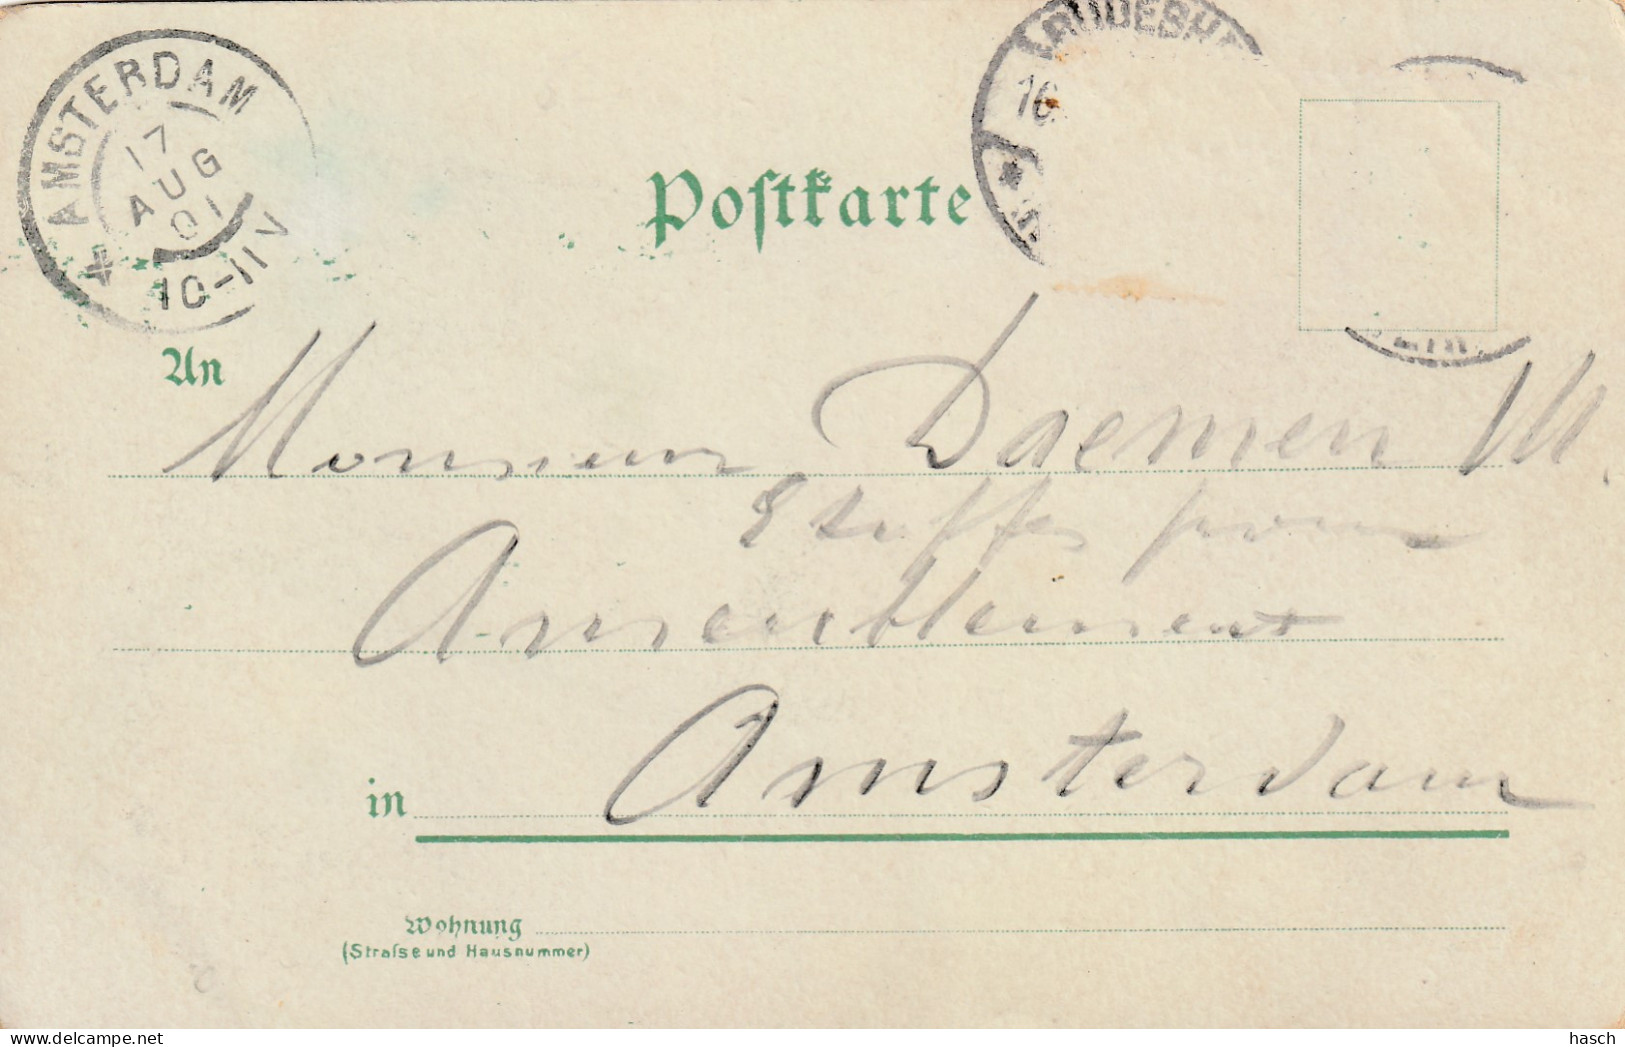 AMSTERDAM
17
AUG
01
10-11V
RÜDESHE
16
Postkarte
An
Monsieur Daemen M.
Etoffes pour
Ameublement
in Amsterdam
Wohnung
(Strasse und Hausnummer)
www.delcampe.net
hasch